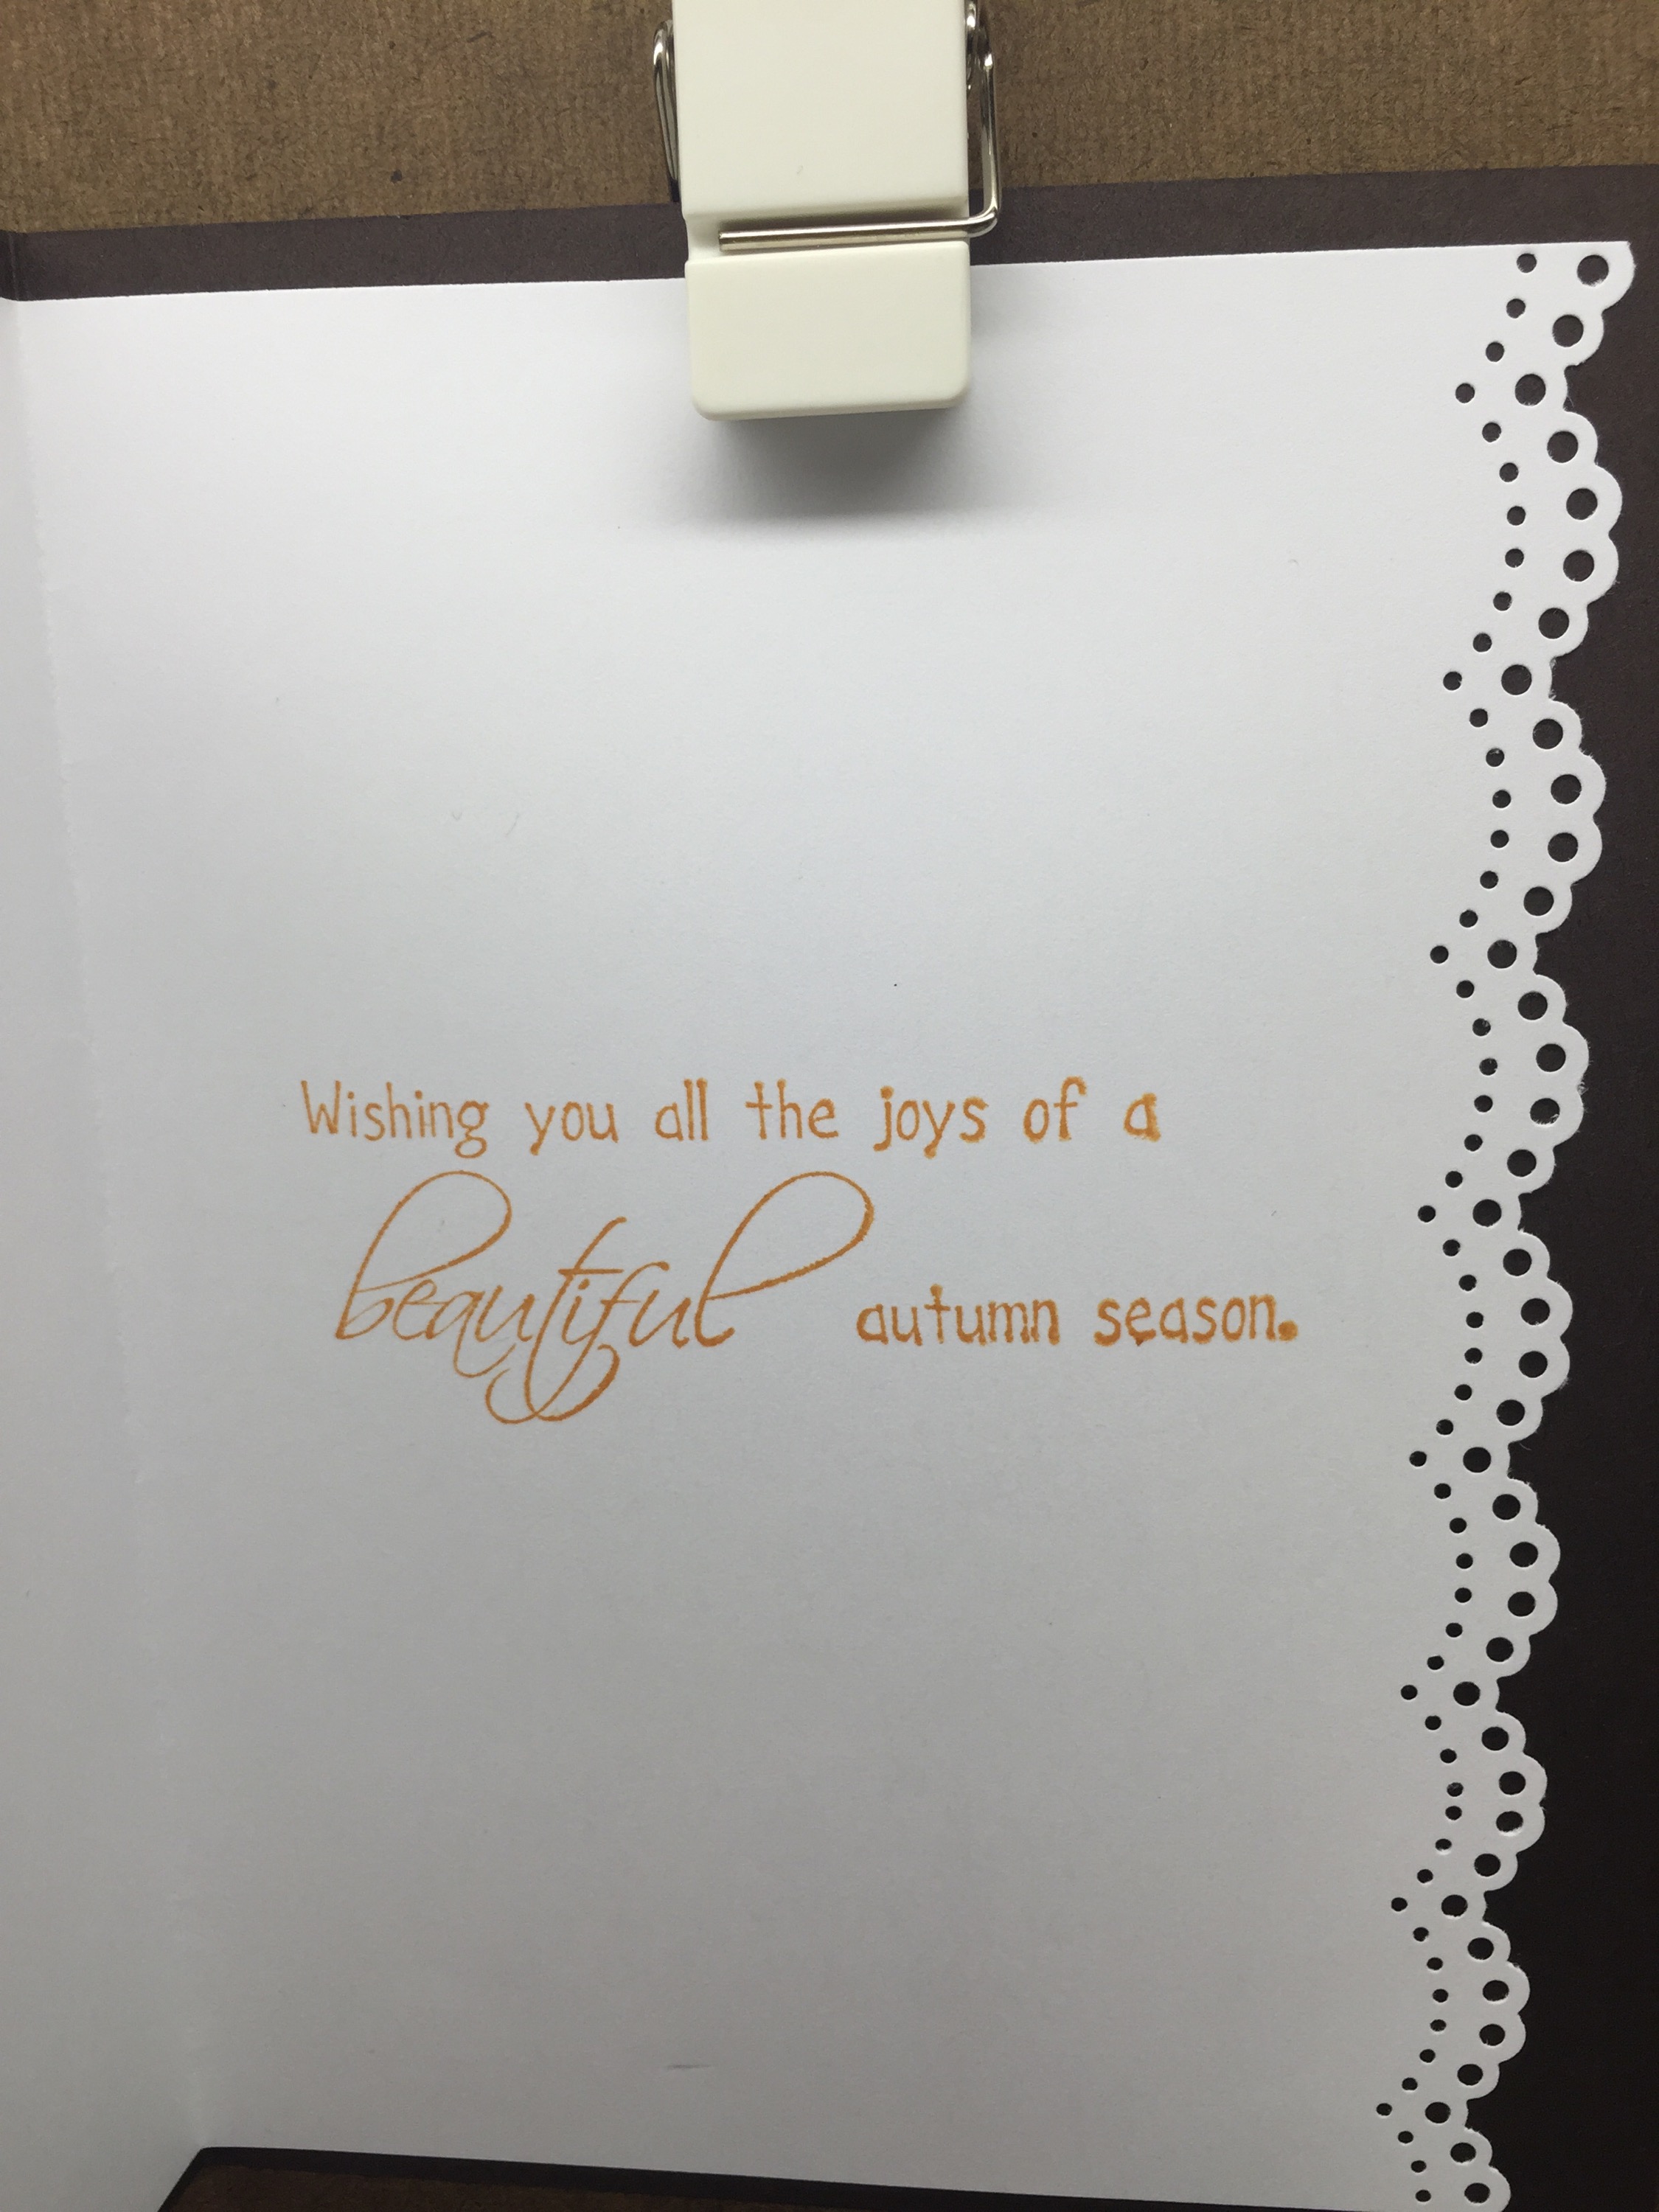 Wishing you all the joys of a
beautiful autumn season.